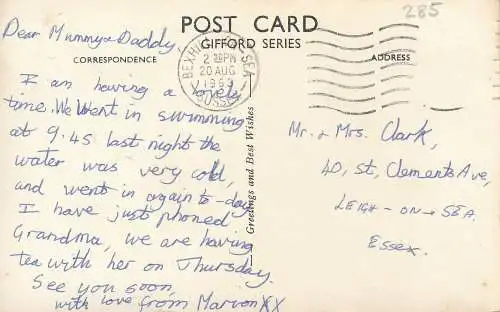 285
POST CARD
GIFFORD SERIES
CORRESPONDENCE
ADDRESS
BEXHILL-ON-SEA
20 AUG
SUSSEX
Greetings and Best Wishes
Dear Mummy & Daddy,
I am having a lovely
time. We went in swimming
at 9.45 last night the
water was very cold,
and went in again to-day
I have just phoned
Grandma, we are having
tea with her on Thursday.
See you soon,
with love from Marion XX
Mr. & Mrs. Clark,
40, St, Clements Ave,
LEIGH-ON-SEA.
Essex.